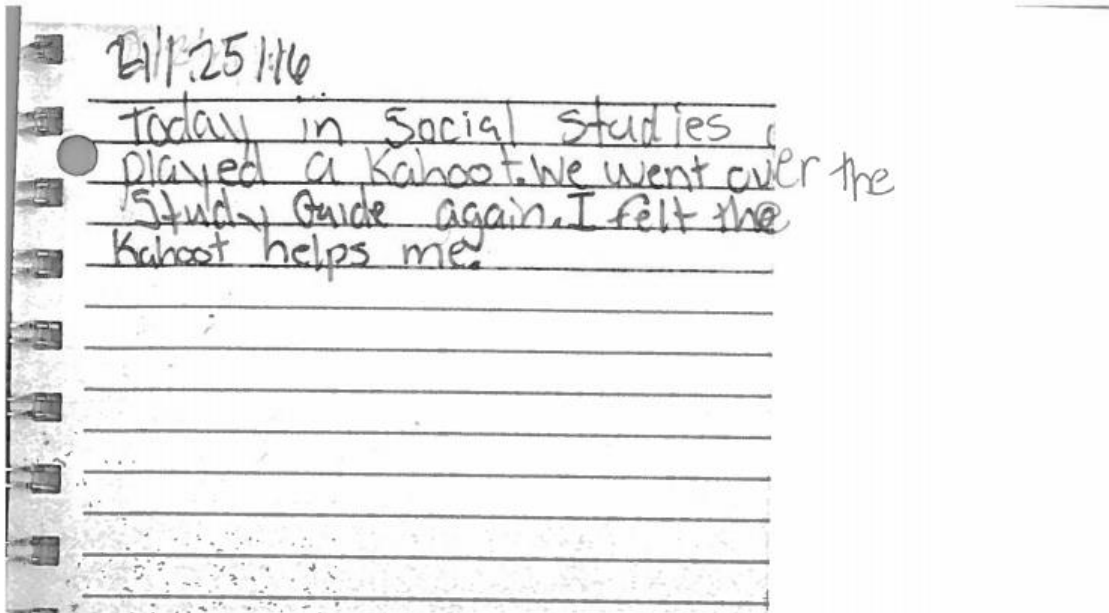 Today in Social studies
played a Kahoot. We went over the
Study Guide again. I felt the
Kahoot helps me.